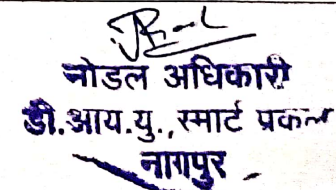 नोडल अधिकारी
डी.आय.यु.,स्मार्ट प्रकल्प
नागपुर